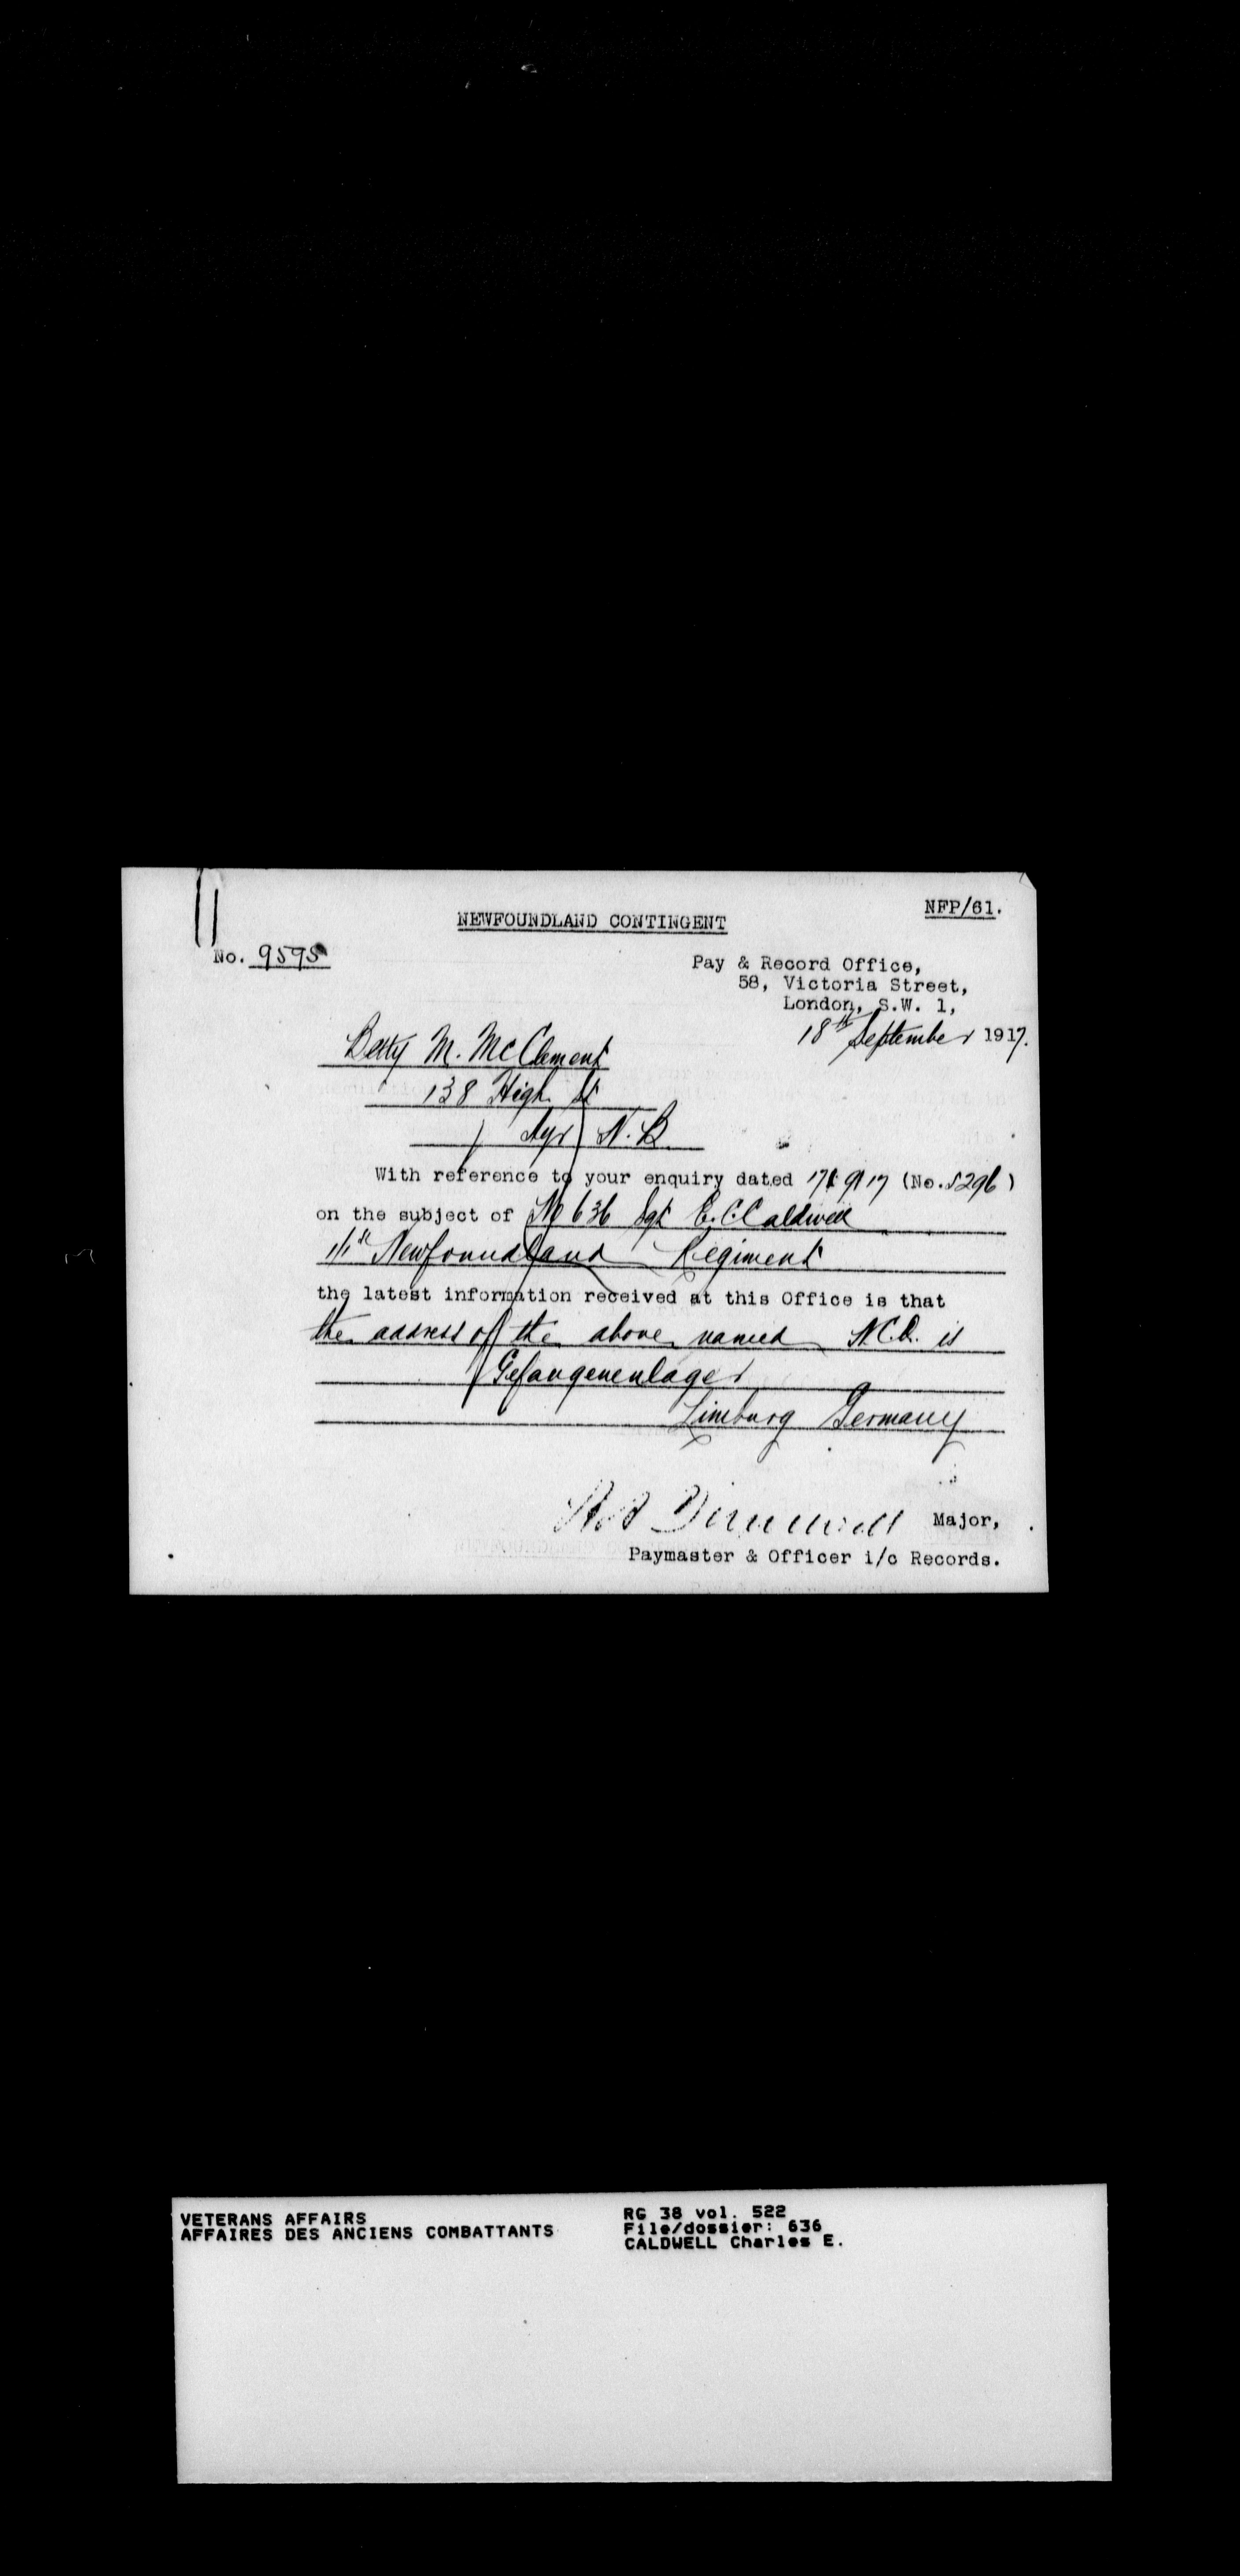 NFP/61.
NEWFOUNDLAND CONTINGENT
No. 9595
Pay & Record Office,
58, Victoria Street,
London, S.W. 1,
18th September 1917.
Betty M. McClement
138 High St
Ayr N.B
With reference to your enquiry dated 17/9/17 (No. 5296)
on the subject of No 636 Sgt E.C. Caldwell
1/1st Newfoundland Regiment
the latest information received at this Office is that
the address of the above named N.C.O. is
Gefangenenlager
Limburg Germany
Major,
Paymaster & Officer i/c Records.
VETERANS AFFAIRS
AFFAIRES DES ANCIENS COMBATTANTS
RG 38 vol. 522
File/dossier: 636
CALDWELL Charles E.